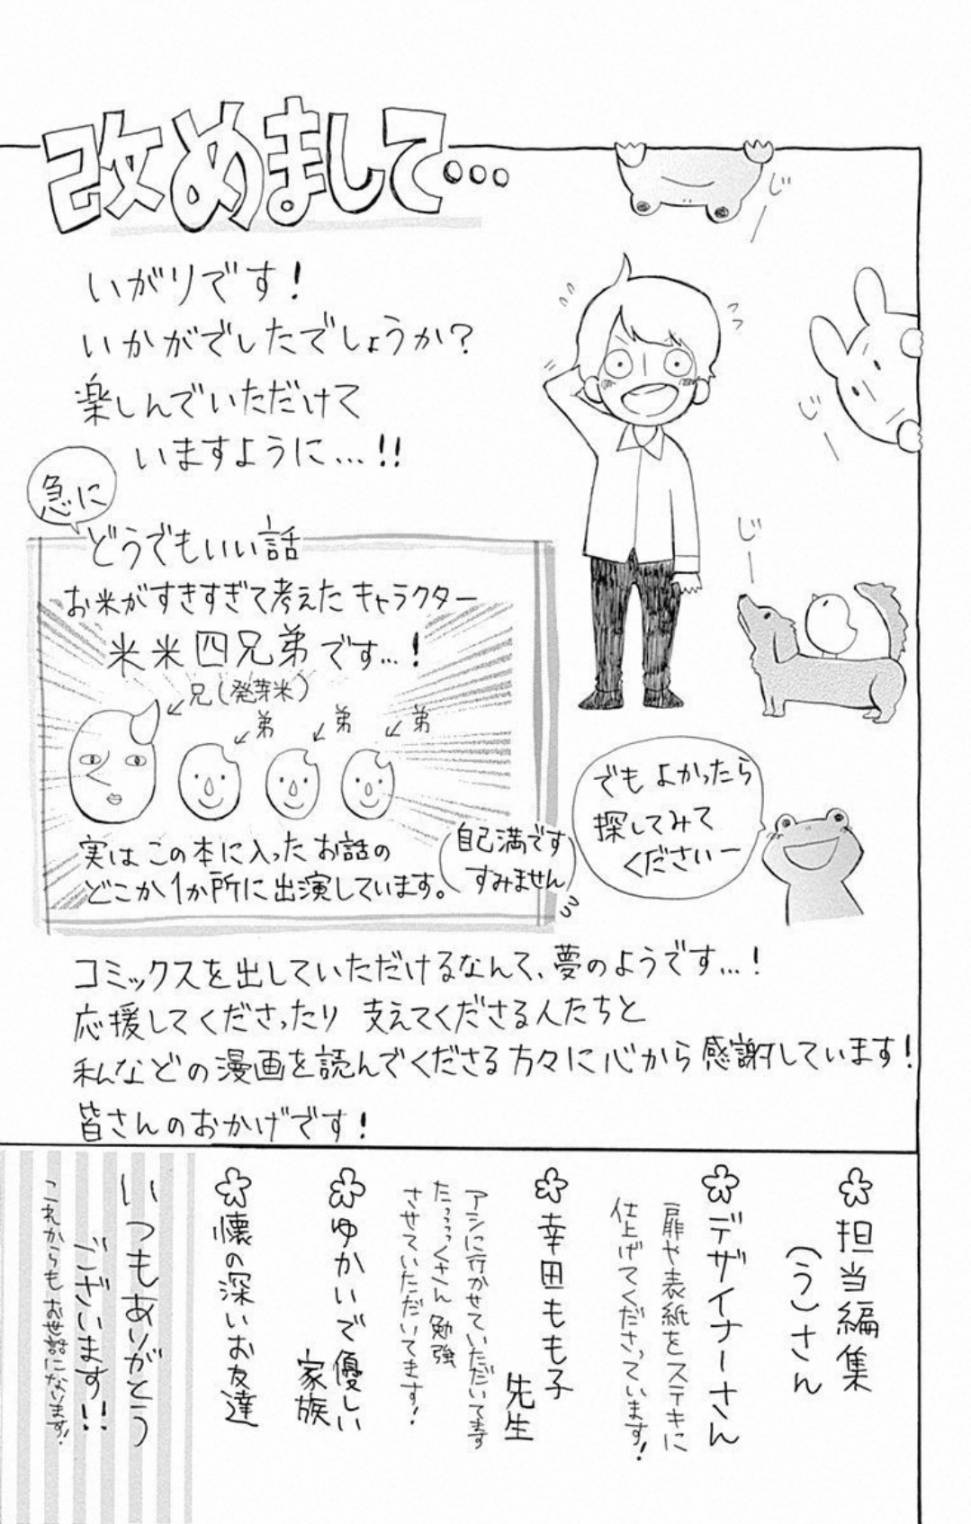 改めまして…
いがりです！
いかがでしたでしょうか？
楽しんでいただけて
いますように…!!
じー
じー
じー
急に
どうでもいい話
お米がすきすぎて考えたキャラクター
米米四兄弟です…！
兄（発芽米）
弟
弟
弟
実はこの本に入ったお話の
どこか1か所に出演しています。
（自己満です
すみません）
でもよかったら
探してみて
くださいー
コミックスを出していただけるなんて、夢のようです…！
応援してくださったり 支えてくださる人たちと
私などの漫画を読んでくださる方々に心から感謝しています！
皆さんのおかげです！
担当編集
（う）さん
デザイナーさん
扉や表紙をステキに
仕上げてくださっています！
幸田もも子
先生
アシに行かせていただいてます
たっっっくさん勉強
させていただいてます！
ゆかいで優しい
家族
懐の深いお友達
いつもありがとう
ございます!!
これからもお世話になります！